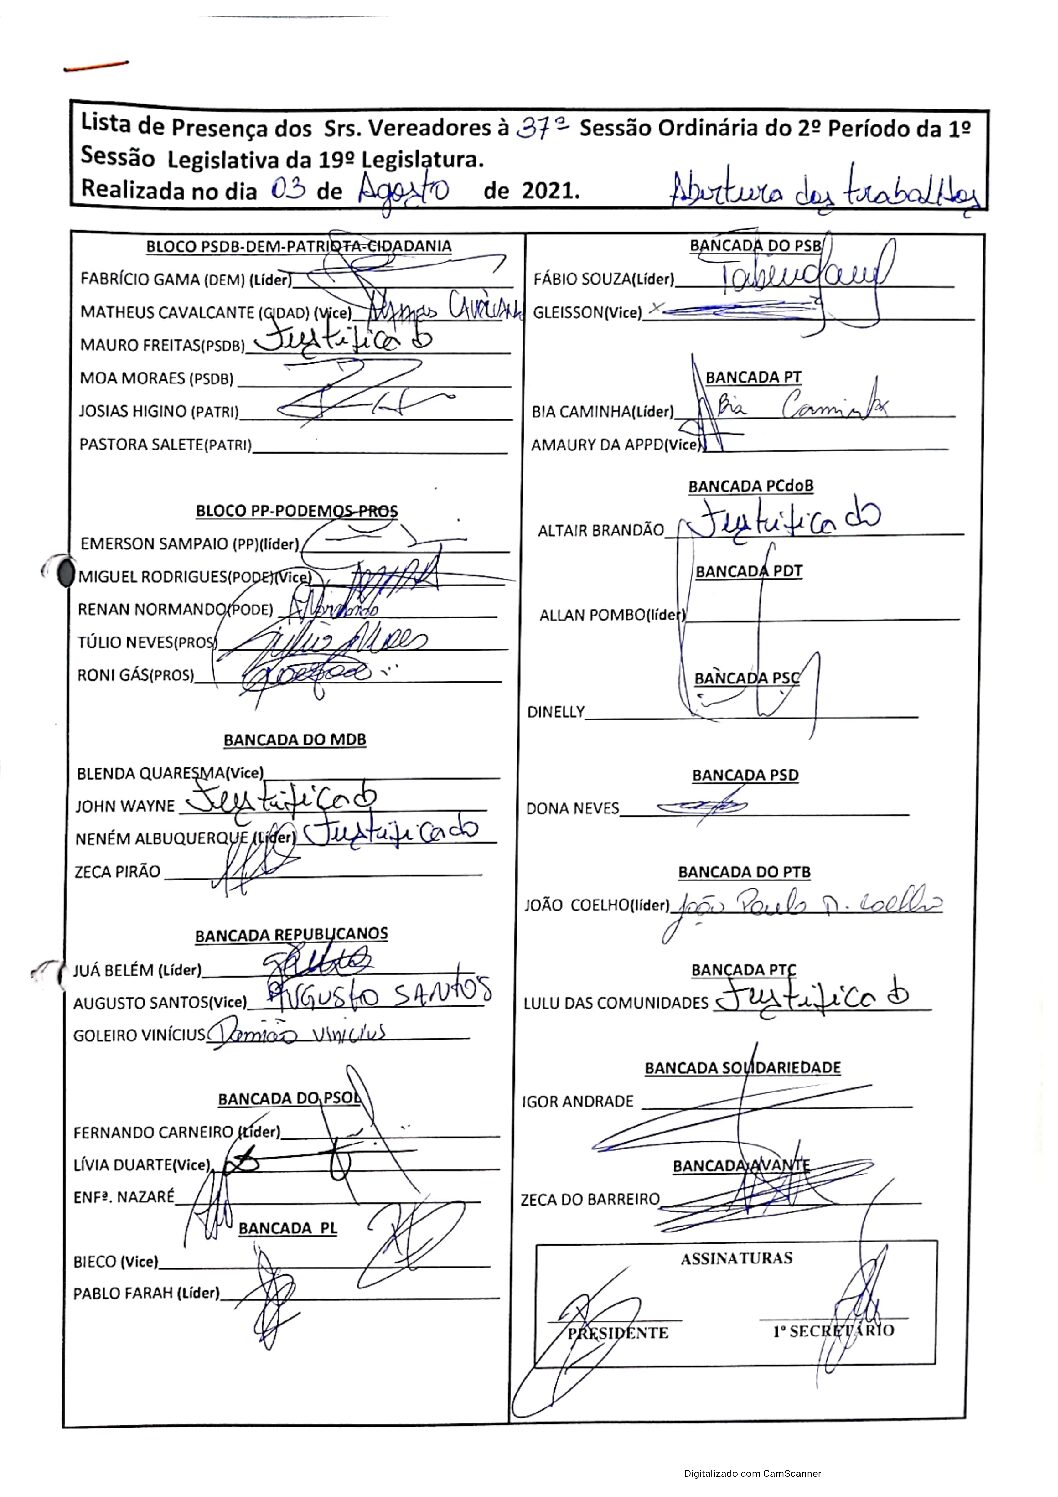 Lista de Presença dos Srs. Vereadores à 37ª Sessão Ordinária do 2º Período da 1º
Sessão Legislativa da 19º Legislatura.
Realizada no dia 03 de Agosto de 2021. Abertura dos trabalhos
BLOCO PSDB-DEM-PATRIOTA-CIDADANIA
FABRÍCIO GAMA (DEM) (Líder)
MATHEUS CAVALCANTE (CIDAD) (Vice)
MAURO FREITAS(PSDB) Justificado
MOA MORAES (PSDB)
JOSIAS HIGINO (PATRI)
PASTORA SALETE(PATRI)
BLOCO PP-PODEMOS-PROS
EMERSON SAMPAIO (PP)(líder)
MIGUEL RODRIGUES(PODE)(Vice)
RENAN NORMANDO(PODE)
TÚLIO NEVES(PROS) Túlio Neves
RONI GÁS(PROS)
BANCADA DO MDB
BLENDA QUARESMA(Vice)
JOHN WAYNE Justificado
NENÉM ALBUQUERQUE (Líder) Justificado
ZECA PIRÃO
BANCADA REPUBLICANOS
JUÁ BELÉM (Líder)
AUGUSTO SANTOS(Vice) AUGUSTO SANTOS
GOLEIRO VINÍCIUS Damião Vinicius
BANCADA DO PSOL
FERNANDO CARNEIRO (Líder)
LÍVIA DUARTE(Vice)
ENFª. NAZARÉ
BANCADA PL
BIECO (Vice)
PABLO FARAH (Líder)
BANCADA DO PSB
FÁBIO SOUZA(Líder)
GLEISSON(Vice) x
BANCADA PT
BIA CAMINHA(Líder) Bia Caminha
AMAURY DA APPD(Vice)
BANCADA PCdoB
ALTAIR BRANDÃO Justificado
BANCADA PDT
ALLAN POMBO(líder)
BANCADA PSC
DINELLY
BANCADA PSD
DONA NEVES
BANCADA DO PTB
JOÃO COELHO(líder) João Paulo N. Coelho
BANCADA PTC
LULU DAS COMUNIDADES Justificado
BANCADA SOLIDARIEDADE
IGOR ANDRADE
BANCADA AVANTE
ZECA DO BARREIRO
ASSINATURAS
PRESIDENTE 1º SECRETÁRIO
Digitalizado com CamScanner